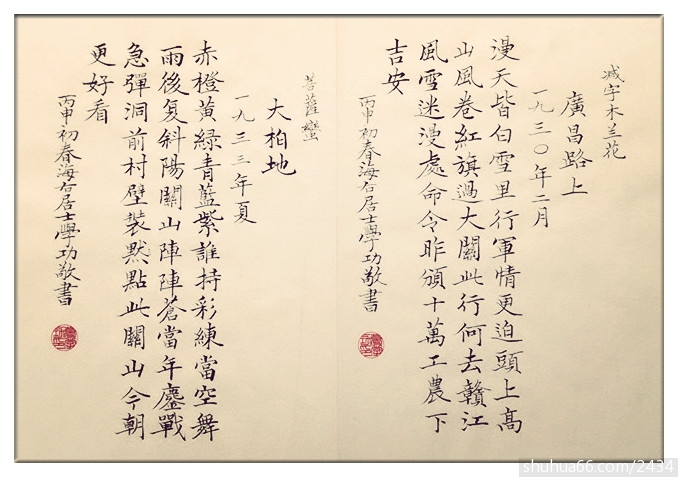 减字木兰花
廣昌路上
一九三〇年二月
漫天皆白雪里行軍情更迫頭上高
山風卷紅旗過大關此行何去贛江
風雪迷漫處命令昨頒十萬工農下
吉安
丙申初春海右居士學功敬書
菩薩蠻
大柏地
一九三三年夏
赤橙黃綠青藍紫誰持彩練當空舞
雨後复斜陽關山陣陣蒼當年鏖戰
急彈洞前村壁裝點點此關山今朝
更好看
丙申初春海右居士學功敬書
shuhua66.com/2434